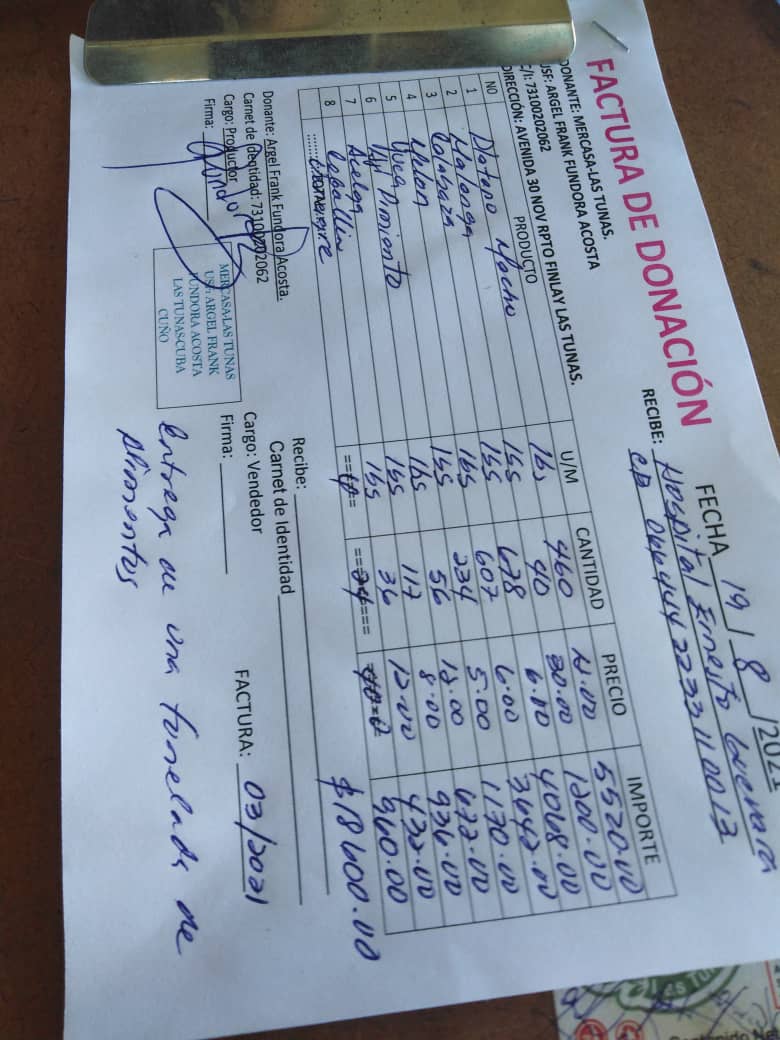 FACTURA DE DONACIÓN FECHA 19/8/2021
DONANTE: MERCASA-LAS TUNAS. RECIBE: Hospital Ernesto Guevara
USF: ARGEL FRANK FUNDORA ACOSTA
C/I: 73100202062
DIRECCIÓN: AVENIDA 30 NOV RPTO FINLAY LAS TUNAS.
NO PRODUCTO U/M CANTIDAD PRECIO IMPORTE
1 Platano Macho lbs 460 12.00 5520.00
2 Malanga lbs 40 30.00 1200.00
3 Calabaza lbs 678 6.00 4068.00
4 Melon lbs 607 6.00 3642.00
5 Yuca lbs 234 5.00 1170.00
6 Aji Pimiento lbs 56 12.00 672.00
7 Acelga lbs 117 8.00 936.00
8 Cebollin lbs 36 12.00 432.00
960.00
$18600.00
Donante: Argel Frank Fundora Acosta. Recibe:
Carnet de Identidad: 73100202062 Carnet de Identidad
Cargo: Productor Cargo: Vendedor
Firma: Firma: FACTURA: 03/2021
MERCASA-LAS TUNAS
USF: ARGEL FRANK
FUNDORA ACOSTA
LAS TUNAS-CUBA
CUÑO
Entrega de una tonelada de
alimentos